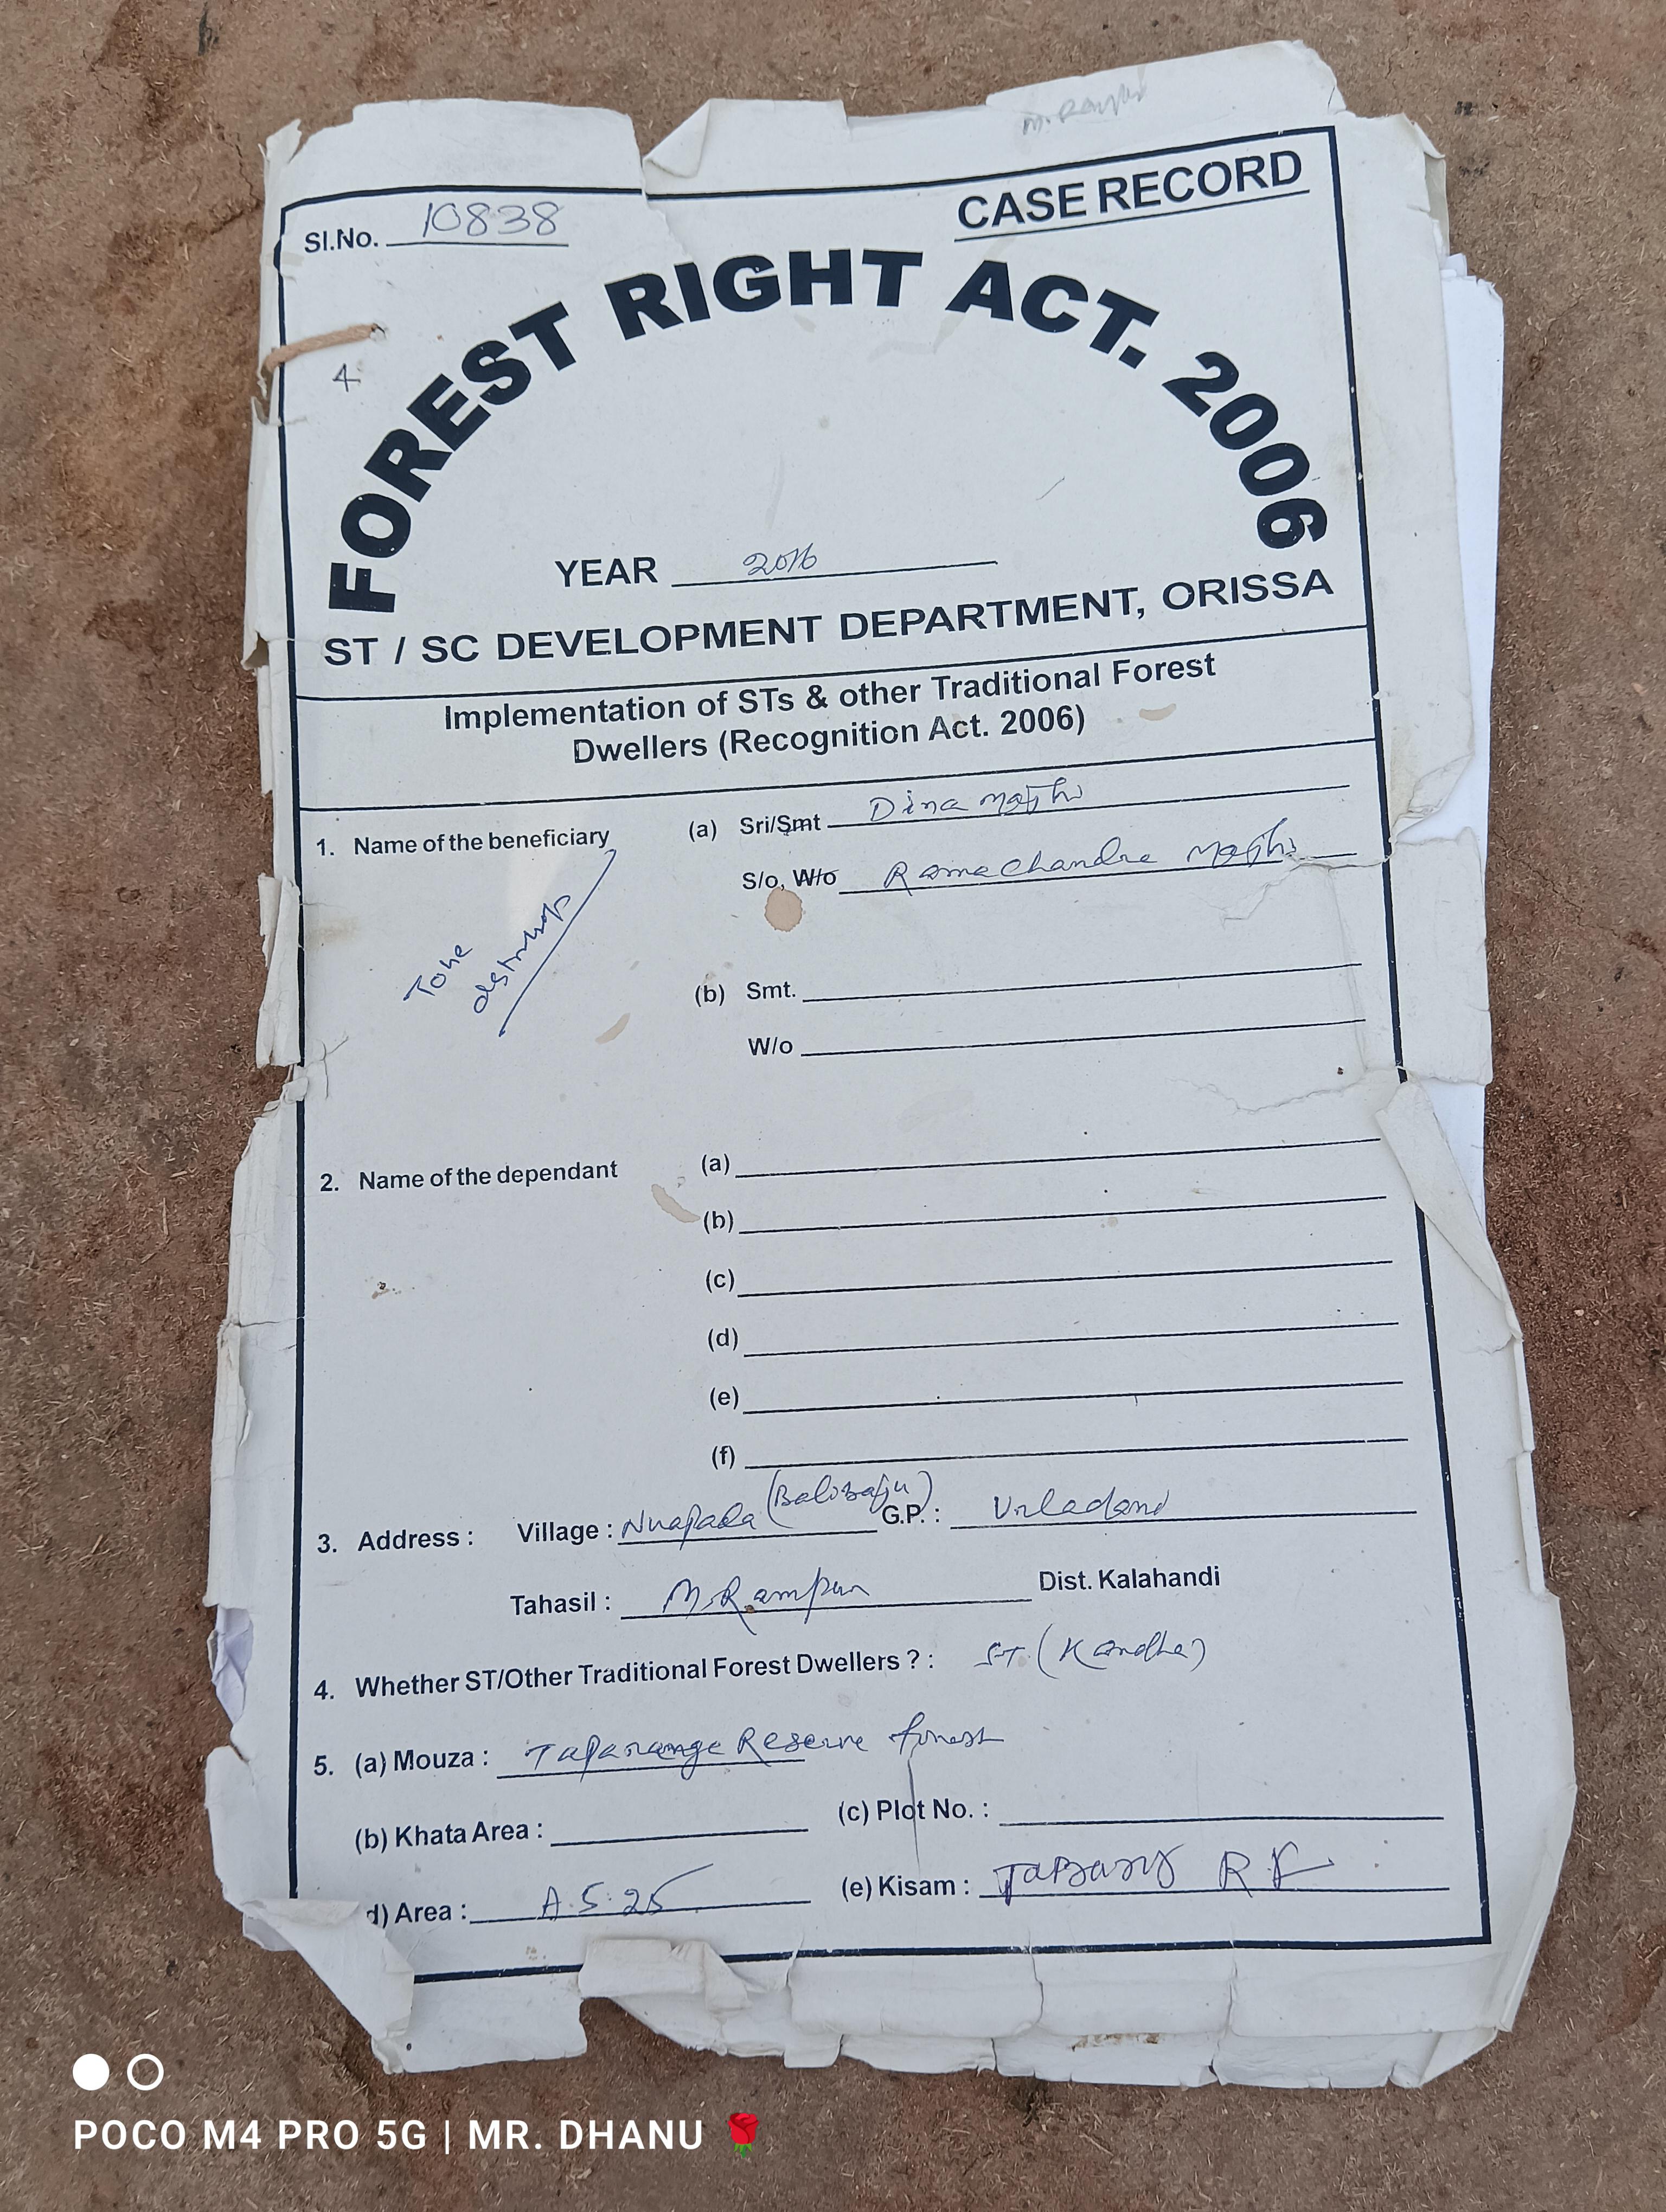 M. Rampur
CASE RECORD
Sl.No. 10838
FOREST RIGHT ACT. 2006
4
YEAR 2016
ST / SC DEVELOPMENT DEPARTMENT, ORISSA
Implementation of STs & other Traditional Forest
Dwellers (Recognition Act. 2006)
1. Name of the beneficiary (a) Sri/Smt Dina Majhi
S/o, W/o Ramachandra Majhi
To be
(b) Smt.
W/o
2. Name of the dependant (a)
(b)
(c)
(d)
(e)
(f)
3. Address : Village : Nuapada (Balisaju) G.P. : Urladani
Tahasil : M.Rampur Dist. Kalahandi
4. Whether ST/Other Traditional Forest Dwellers ? : ST (Kandha)
5. (a) Mouza : Taparange Reserve forest
(b) Khata Area : (c) Plot No. :
d) Area : A.5.25 (e) Kisam : R.F
POCO M4 PRO 5G | MR. DHANU 🌹